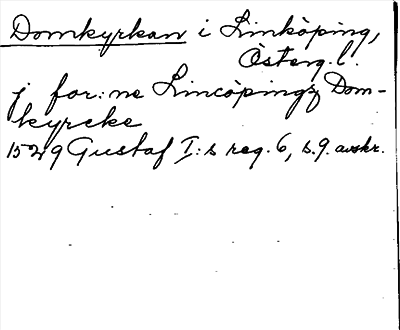 Domkyrkan i Linköping,
Österg. l.
j for:ne Lincöpingz Dom-
kyrcke
1529 Gustaf I:s reg. 6, s.9. avskr.